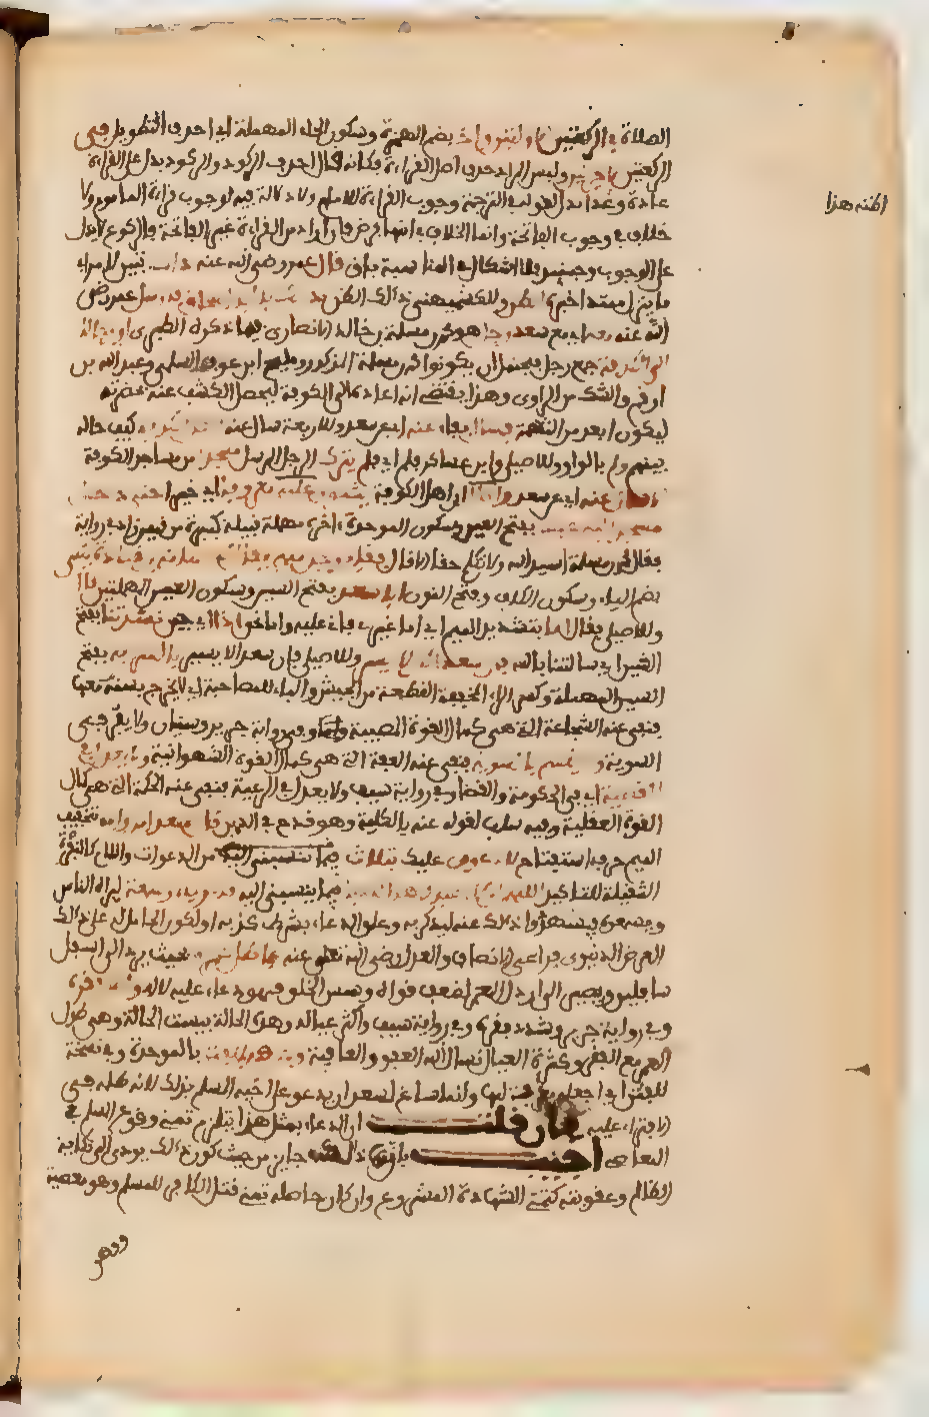 الصلاة في الركعتين الاوليين واحذف بضم الهمزة وسكون الحاء المهملة اي احذف التطويل في
الركعتين الاخريين وليس المراد حذف اصل القراءة فكانه قال احذف الركود والركود يدل على القراءة
عادة وهذا يدل لقوله في الترجمة وجوب القراءة للامام ولا دلالة فيه لوجوب قراءة الماموم ولا
خلاف في وجوب الفاتحة وانما الخلاف في انها فرض فان اراد من القراءة غير الفاتحة فالركود لا يدل
على الوجوب وحينئذ فالاشكال في المناسبة باق قال عمر رضي الله عنه ذاك بتبين الامر اي
ما يقال مبتدا خبره الظن وللكشميهني ذلك الظن بك يا ابا اسحاق فارسل عمر رضي
الله عنه معه اي مع سعد رجلا هو محمد بن مسلمة بن خالد الانصاري فيما ذكره الطبري او رجالا
الى الكوفة جمع رجل فيحتمل ان يكونوا محمد بن مسلمة المذكور ومليح ابن عوف السلمي وعبد الله بن
ارقم والشك من الراوي وهذا يقتضي انه اعاده الى الكوفة ليحصل الكشف عنه بحضرته
ليكون ابعد من التهمة فسال عنه اي عن سعد وللاربعة يسال عنه اهل الكوفة كيف حاله
بينهم ولم بالواو وللاصيلي وابن عساكر فلم اي فلم يترك الرجل المرسل مسجدا من مساجد الكوفة
الا سال عنه اي عن سعد والحال ان اهل الكوفة يثنون عليه معروفا اي خيرا حتى دخل
مسجدا لبني عبس بفتح العين وسكون الموحدة اخره مهملة قبيلة كبيرة من قيس زاد في رواية
فقال محمد بن مسلمة انشد الله رجلا يعلم حقا الا قال فقام رجل منهم يقال له اسامة بن قتادة يكنى
بضم الياء وسكون الكاف وفتح النون ابا سعدة بفتح السين وسكون العين المهملتين قال
وللاصيلي فقال اما بتشديد الميم اي اما غيري فاثنى عليه واما نحن اذا اي حين نشدتنا بفتح
الشين اي سالتنا بالله فان سعدا كان لا يسير وللاصيلي فان سعدا لا يسير بالسرية بفتح
السين المهملة وكسر الراء المخففة القطعة من الجيش والباء للمصاحبة اي لا يخرج بنفسه معها
فنفى عنه الشجاعة التي هي كمال القوة الغضبية وفي رواية جرير وسفيان ولا ينفر في
السرية ولا يقسم بالسوية فنفى عنه العفة التي هي كمال القوة الشهوانية ولا يعدل في
القضية اي في الحكومة والقضاء وفي رواية سيف ولا يعدل في الرعية فنفى عنه الحكمة التي هي كمال
القوة العقلية وفيه سلب لقوله عنه بالكلية وهو قدح في الدين قال سعد اما والله بتخفيف
الميم حرف استفتاح لادعون عليك بثلاث من الدعوات واللام كالنون
الثقيلة للتاكيد اللهم ان كان عبدك هذا كاذبا فيما ينسبني اليه قام رياء وسمعة ليراه الناس
ويسمعوه فيشهروا ذلك عنه ليذكر به وعلق الدعاء بشرط كذبه او لكون الحامل له على ذلك
الغرض الدنيوي فراعى الانصاف والعدل رضي الله تعالى عنه فاطل عمره بحيث يرد الى اسفل
سافلين ويصير الى ارذل العمر لضعف قواه وينكس في الخلق فهو دعاء عليه لا له واطل فقره
وفي رواية جرير وشدد فقره وفي رواية سيف واكثر عياله وهذه الحالة بيست الحالة وهي طول
العمر مع الفقر وكثرة العيال نسال الله العفو والعافية وعرضه بالفتن بالموحدة وفي نسخة
للفتن اي اجعله عرضة لها وانما ساغ لسعد ان يدعو على اخيه المسلم بذلك لانه ظلمه في
الافتراء عليه فان قلت ان الدعاء بمثل هذا يستلزم تمني وقوع المسلم في
المعاصي اجيب بان ذلك جايز من حيث كون ذلك يودي الى نكاية
الظالم وعقوبته كتمني الشهادة المشروع وان كان حاصله تمني قتل الكافر للمسلم وهو معصية
ووهن